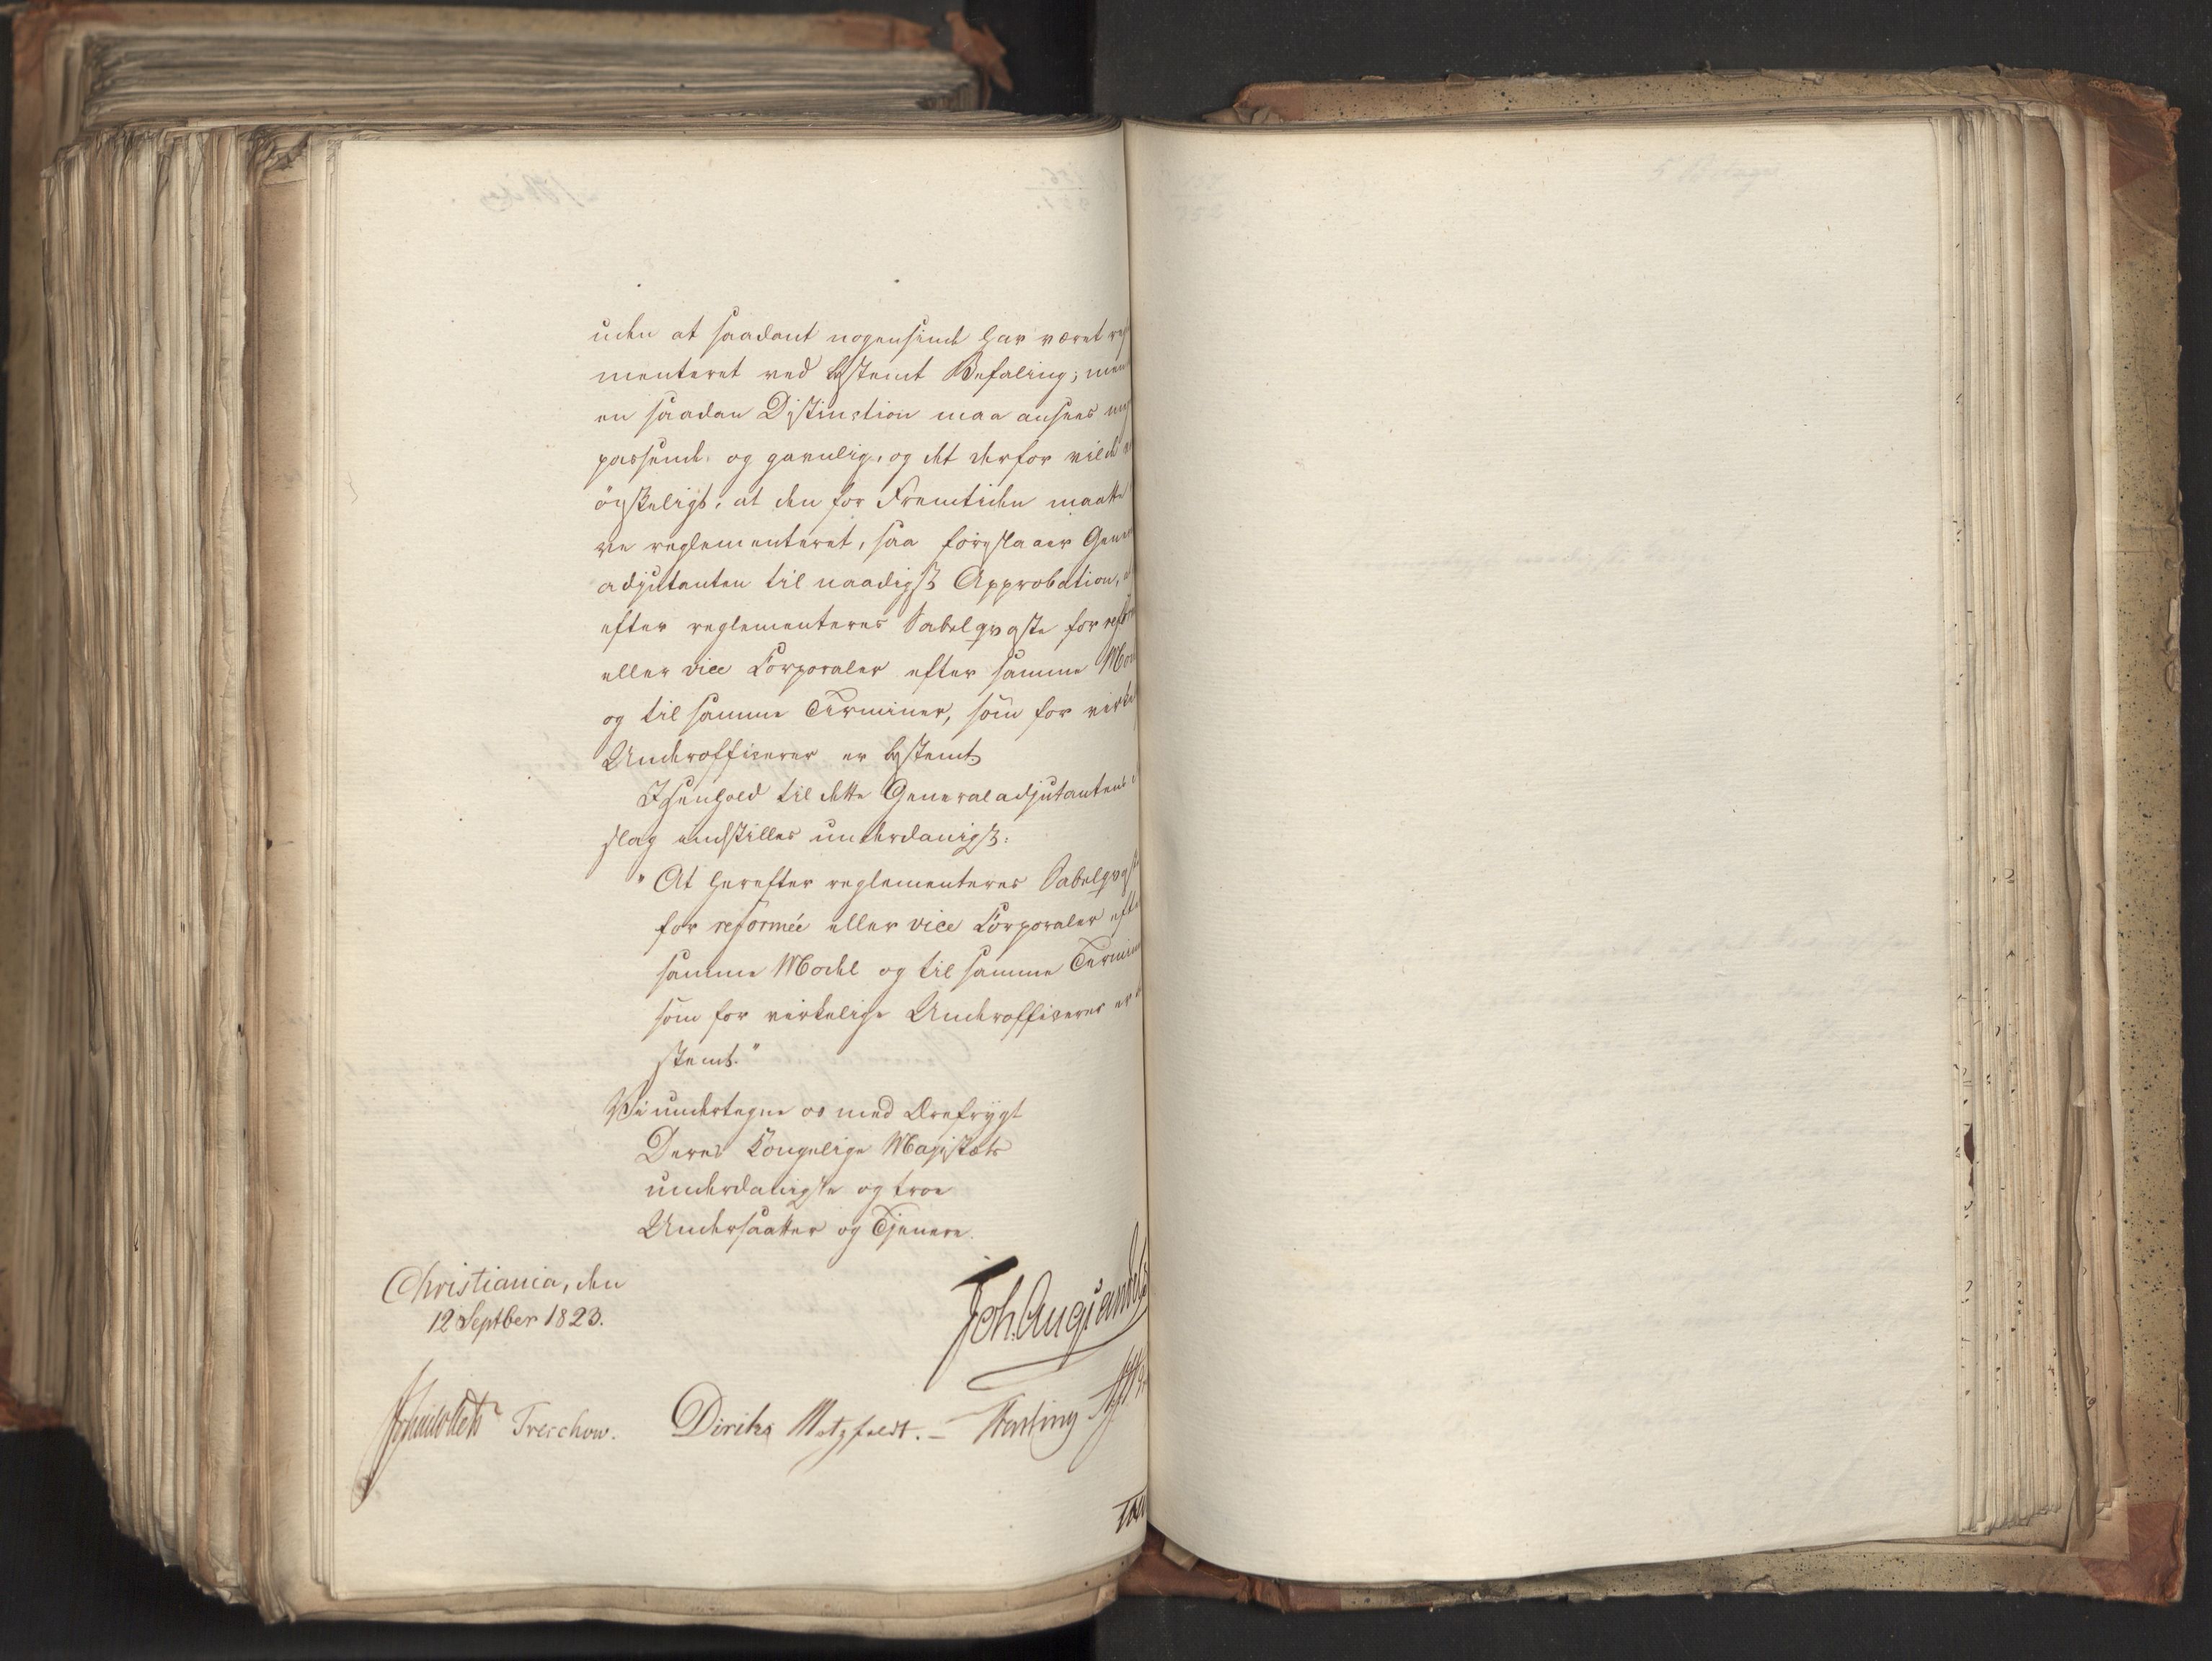 uden at saadant nogensinde har været reg
menteret ved bestemt Befaling; men
en saadan Distinction maa ansees
passende og gavnlig, og det derfor vilde
önskeligt, at den for Fremtiden maatte
ve reglementeret, saa foreslaaer Gene
adjutanten til naadigst Approbation,
efter reglementeres Sabelqvaste for refor
eller vice Corporaler efter samme Mod
og til samme Terminer, som for virke
Underofficerer er bestemt
I Henhold til dette Generaladjutantens
slag indstilles underdanigst:
"At herefter reglementeres Sabelqvaste
for reformée eller vice Corporaler efte
samme Model og til samme Termine
som for virkelige Underofficerer er
stemt."
Vi undertegne os med Ærefrygt
Deres Kongelige Majestæts
underdanigste og troe
Undersaatter og Tjenere.
Christiania, den
12 Septber 1823.
Joh. Aug. Sandels
Treschow. Diriks Motzfeldt. —